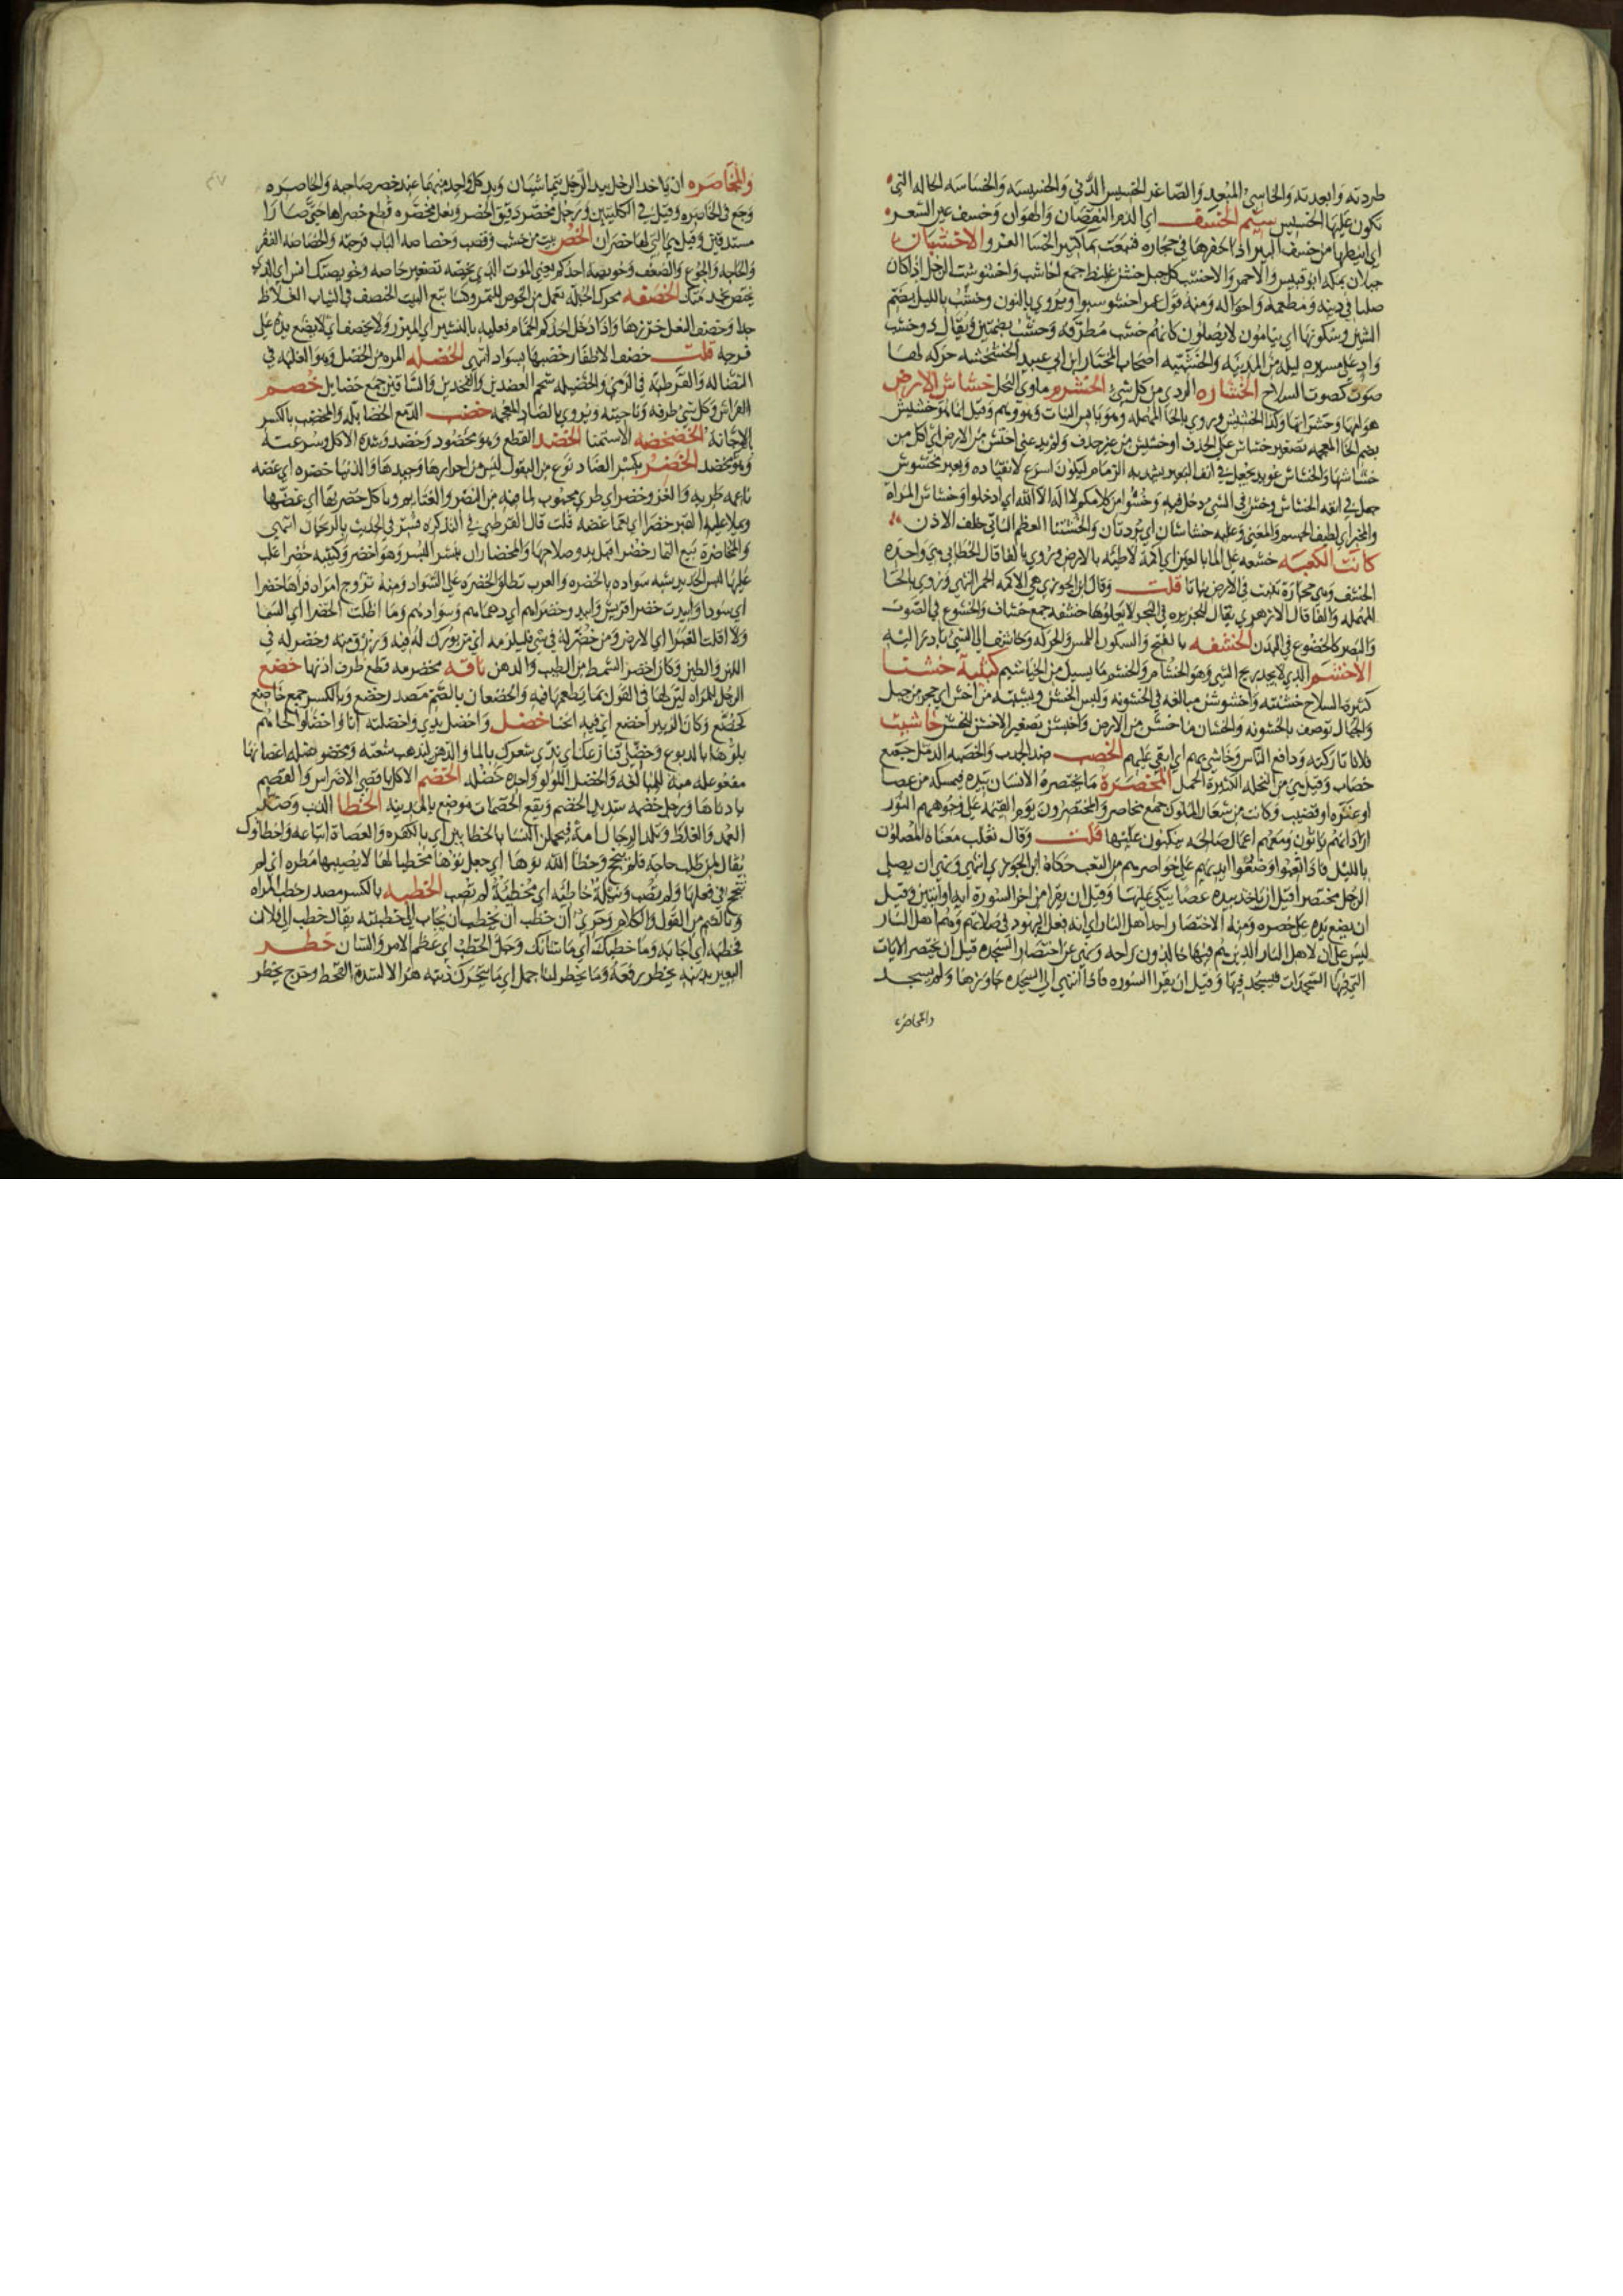 طردته وابعدته والخاسئ المبعد والصاغر الخسيس الدني والخسيسه والخساسه الحاله التي
تكون عليها الخسيس سيم الخسف اي الذم النقصان والهوان وخسف عين الشعر
اي انبطها من خسف البير اذا حفرها في حجاره فنبعت بما كثير الخسا الفرد والاخشبان
جبلان بمكه ابو قبيس والاحمر والاخشب كل جبل خشن غليظ جمع اخاشب واخشوشب الرجل اذا كان
صلبا في دينه ومطعمه واحواله ومنه قول عمر اخشوشبوا ويروي بالنون وخشب بالليل بضم
الشين وسكونها اي ينامون لا يصلون كانهم خشب مطرقه وخشب بضمتين ويقال ذو خشب
واد علي مسيره ليله من المدينه والخشبيه اصحاب المختار ابن ابي عبيد الخشخشه حركه لها
صوت كصوت السلاح الخشاره الردي من كل شي الخشرم ماوي النحل خشاش الارض
هوامها وحشراتها وكذا الخشيش ويروي بالحا المهمله وهو يابس النبات وهو وهم وقيل انما هو خشيش
بضم الخا المعجمه تصغير خشاش علي الحذف او خشيش من غير حذف ولم يدعني اختش من الارض اي اكل من
خشاشها والخشاش عويد يجعل في انف البعير يشد به الزمام ليكون اسرع لانقياده وبعير مخشوش
جعل في انفه الخشاش وخش في الشي دخل فيه وخشوا من كلامكم لا اله الا الله اي ادخلوا وخشاش المراة
والمخبر اي لطيف الجسم والمعني وعليه خشاشتان اي بردتان والخششا العظم الناتي خلف الاذن
كانت الكعبه خشعه علي الما بالعين اي اكمة لاطيه بالارض ويروي بالفا قال الخطابي هي واحده
الخشف وهي حجارة تنبت في الارض نباتا قلت وقال ابن الجوزي هي الاكمه الحمرا انتهي ويروي بالحا
المهمله والفا قال الازهري يقال للجزيره في البحر لا يعلوها حشفه جمع حشاف والخشوع في الصوت
والبصر كالخضوع في البدن الخشفه بالفتح والسكون اللمس والحركه وخاشف الي الشي بادر اليه
الاخشم الذي لا يجد ريح الشي وهو الخشام والخشم ما يسيل من الخياشيم كتيبة خشنا
كثيرة السلاح خشنته واخشوشن مبالغه في الخشونه ولبس الخشن ونشنشه من اخشن اي حجر من جبل
والجبال توصف بالخشونه والخشان ما خشن من الارض واخيشن تصغير الاخشن للخشن خاشيت
فلانا تاركته ودافع الناس وخاشي بهم اي ابقي عليهم الخصب ضد الجدب والخصبه الدقل جمع
خصاب وقيل هي من النخله الكثيرة الحمل المخصرة ما يختصره الانسان بيده فيمسكه من عصا
او عنزه او قضيب وكانت من شعار الملوك جمع مخاصر والمختصرون يوم القيمه علي وجوههم النور
اراد انهم ياتون ومعهم اعمال صالحه يتكيون عليها قلت وقال ثعلب معناه المصلون
بالليل فاذا تعبوا وضعوا ايديهم علي خواصرهم من التعب حكاه ابن الجوزي انتهي ونهي ان يصلي
الرجل مختصرا قيل ان ياخذ بيده عصا يتكي عليها وقيل ان يقرا من اخر السورة اية او ايتين وقيل
ان يضع يده علي خصره ومنه الاختصار راحه اهل النار اي انه فعل اليهود في صلاتهم وهم اهل النار
ليس علي ان لاهل النار الذين هم فيها خالدون راحه ونهي عن اختصار السجده قيل ان يختصر الايات
التي فيها السجدات فيسجد فيها وقيل ان يقرا السوره فاذا انتهي الي السجده جاوزها ولم يسجد
والمخاصره
والمخاصره ان ياخذ الرجل بيد الرجل يتماشيان ويد كل واحد منهما عند خصر صاحبه والخاصره
وجع في الخاصره وقيل في الكليتين ورجل مخصر دقيق الخصر ونعل مخصره قطع خصراها حتي صارا
مستدقين وقيل هي التي لها خصران الخص بيت من خشب وقصب وخصاصه الباب فرجته والخصاصه الفقر
والحاجه والجوع والضعف وخويصه احدكم يعني الموت الذي يخصه تصغير خاصه وخويصتك انس اي الذي
يختص بخدمتك الخصفه محركه الجله تعمل من الخوص للتمر وكسا تبع البيت الخصف هي الثياب الغلاظ
جدا وخصف النعل خرزها واذا دخل احدكم الحمام فعليه بالنشير اي الميزر ولا يخصف اي لا يضع يده علي
فرجه قلت خضف الاظفار خضبها بسواد انتهي الخصله المره من الخصل وهو الغلبه في
النضاله والقرطسه في الرمي والخصيله لحم العضدين والفخذين والساقين جمع خصايل خصم
الفراش وكل شي طرفه وناحيته ويروي بالضاد المعجمه خضب الدمع الحصا بله والمخضب بالكسر
الاجانه الخضخضه الاستمنا الخضد القطع وهو مخضود وخضد وشدة الاكل وسرعته
وهو مخضد الخضر بكسر الضاد نوع من البقول ليس من احرارها وجيدها والدنيا خضره اي غضه
ناعمه طريه والغزو خضر اي طري محبوب لما فيه من النصر والغنايم وياكل خضرتها اي غضتها
ويملا عليه القبر خضرا اي نعما غضه قلت قال القرطبي في التذكره فسر في الحديث بالريحان انتهي
والمخاضرة بيع الثمار خضرا قبل بدو صلاحها والمخضاران بنشر البسر وهو اخضر وكتيبه خضرا غلب
عليها لبس الحديد شبه سواده بالخضره والعرب تطلق الخضره علي السواد ومنه تزوج امراة فراها خضرا
اي سودا وابيدت خضرا قريش وابيد وخضراهم اي دهماهم وسوادهم وما اظلت الخضرا اي السما
ولا اقلت الغبرا اي الارض ومن خضر له في شي فليلزمه اي من بورك له فيه ورزق منه وخضر له في
اللبن والطين وكان اخضر الشمط من الطيب والدهن ناقه مخضرمه قطع طرف اذنها خضع
الرجل للمراه لين لها في القول بما يطمعها فيه والخضعان بالضم مصدر رخضع وبالكسر جمع خاضع
كخضع وكان الزبير اخضع اي فيه انحنا خضل واخضل يدي واخضلته انا واخضلوا لحاهم
بلوها بالدموع وخضلي قنازعك اي ندي شعرك بالما والدهن ليذهب شعثه ومخضوضله اغصانها
مفعوعله منه للمبالغه والخضل اللؤلؤ واحده خضله الخضم الاكل باقصي الاضراس والقضم
بادناها ورجل خضمه شديد الخضم ونقيع الخضمات موضع بالمدينه الخطا الذنب وضد
العمد والغلط وتلد الرجال امة فيحملن النسا بالخطايين اي بالكفره والعصاة اتباعه واخطاوك
يقال لمن طلب حاجه فلم ينجح وخطا الله نوها اي جعل نوها مخطيا لها لا يصيبها مطره اي لم
تنجح في فعلها ولم تصب ونبلة خاطيه اي مخطية لم تصب الخطبه بالكسر مصدر خطب المراه
وبالضم من القول والكلام وحري ان خطب ان يخطب ان يجاب الي خطبته يقال خطب الي فلان
فخطبه اي اجابه وما خطبك اي ما شانك وجل الخطب اي عظم الامر والشان خطر
البعير بذنبه يخطر رفعه وما يخطر لنا جمل اي ما يحرك ذنبه هزالا لشدة القحط وخرج يخطر